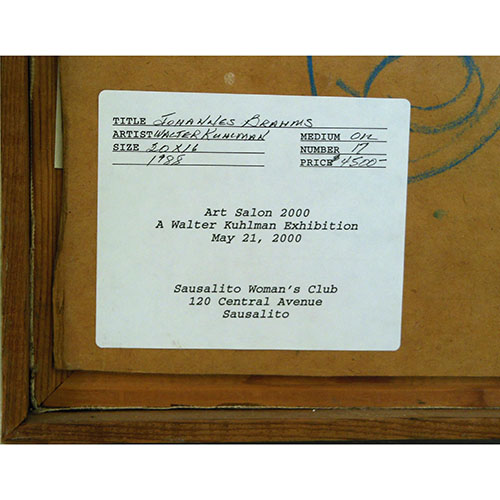 TITLE JOHANNES BRAHMS
ARTIST WALTER KUHLMAN MEDIUM OIL
SIZE 20X16 NUMBER 17
1988 PRICE $4500-
Art Salon 2000
A Walter Kuhlman Exhibition
May 21, 2000
Sausalito Woman's Club
120 Central Avenue
Sausalito